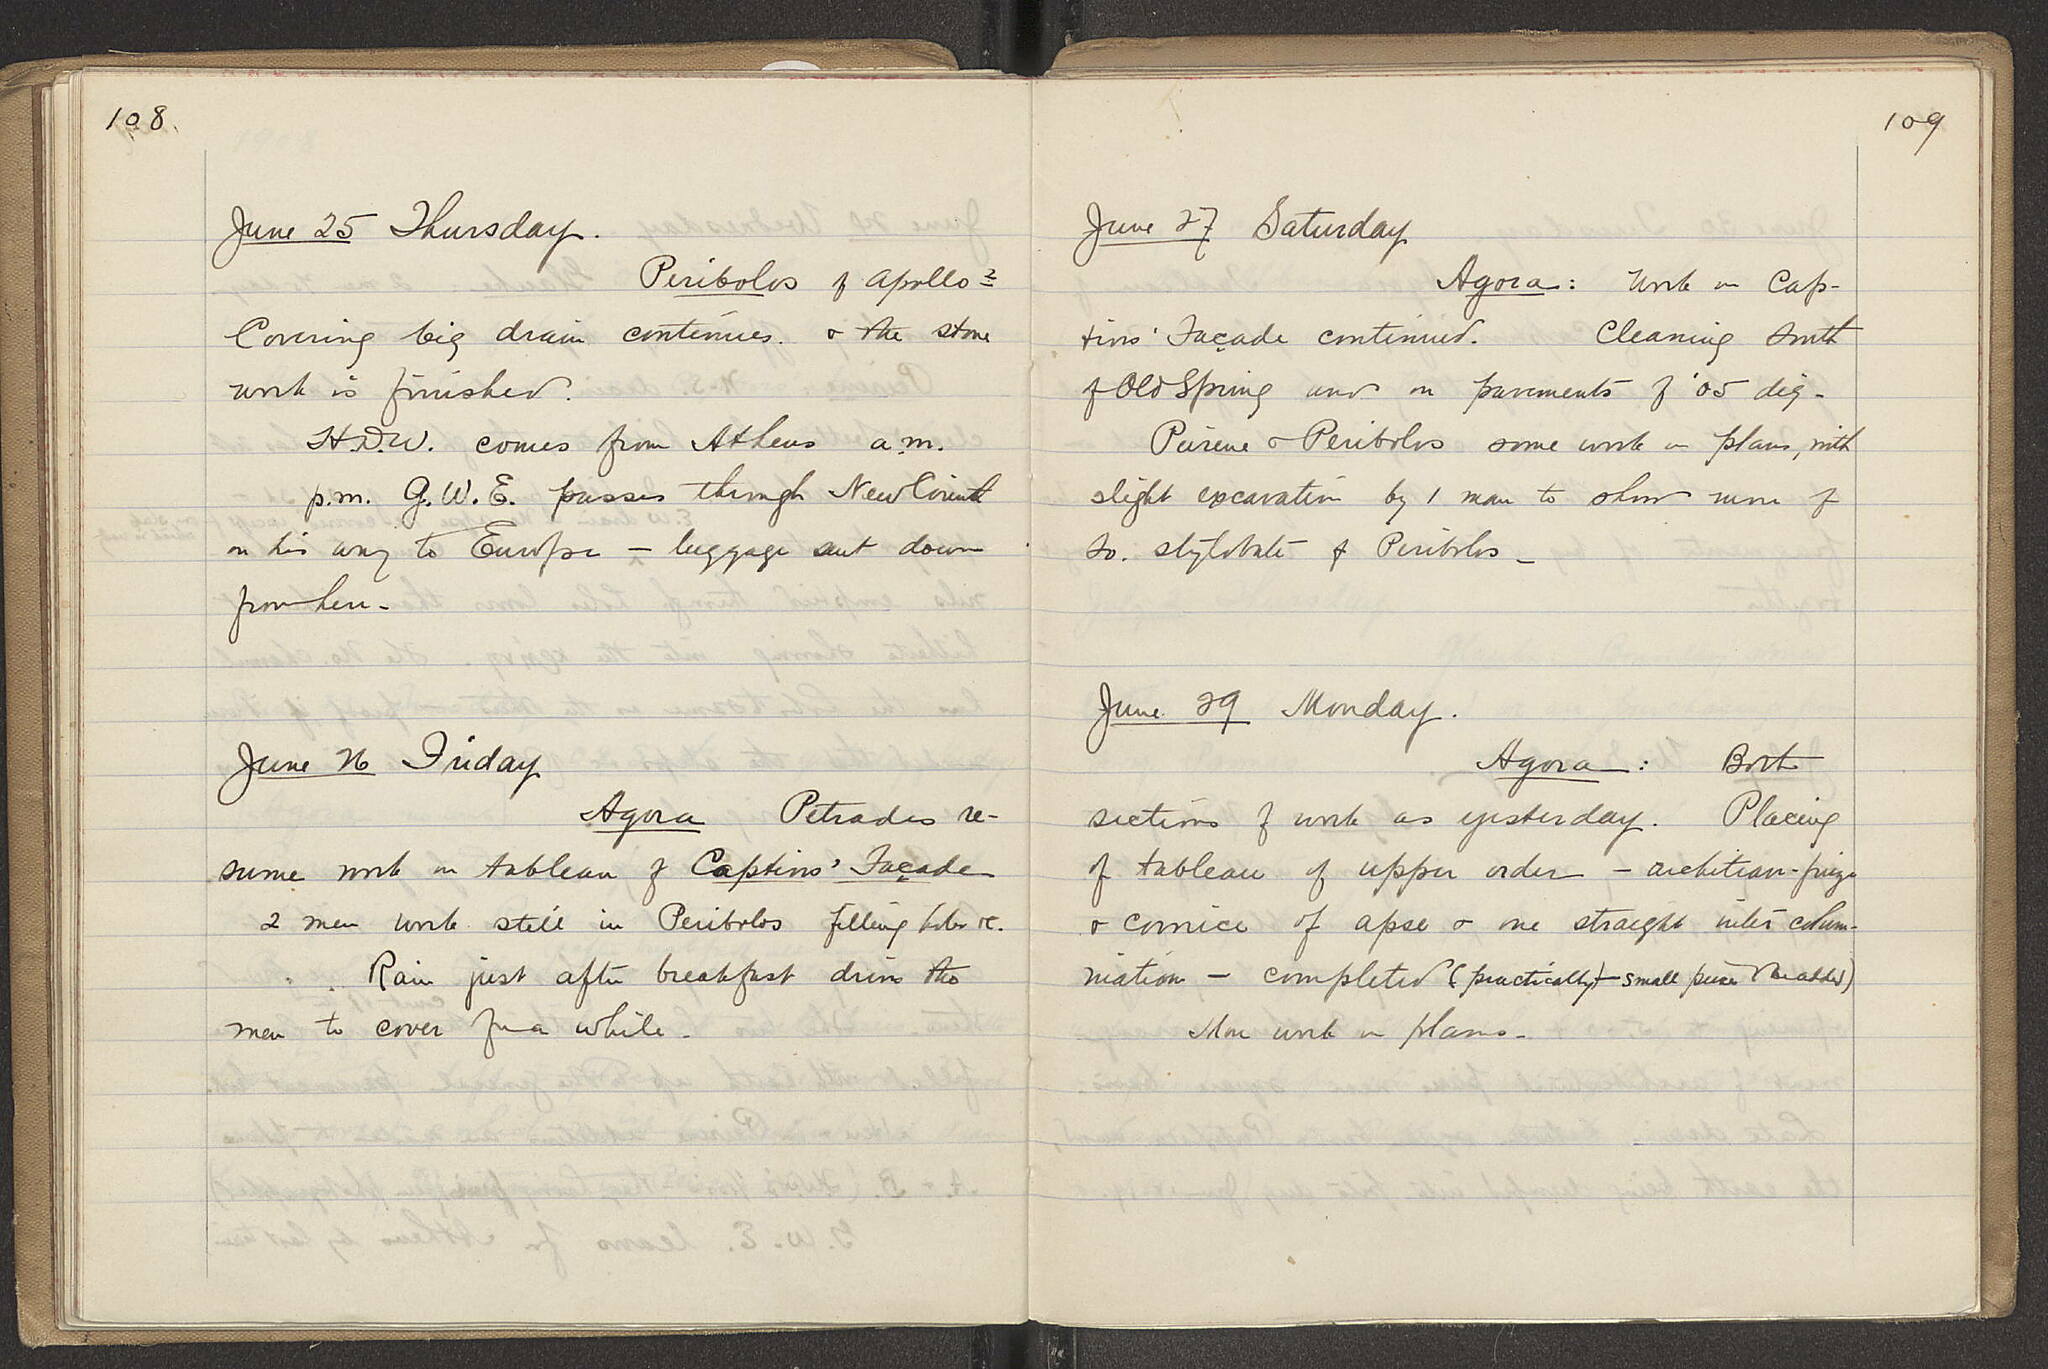 108.
June 25 Thursday.
Peribolos of Apollo =
Covering big drain continues. & the stone
work is finished.
H.D.W. comes from Athens a.m.
p.m. G.W.E. passes through New Corinth
on his way to Europe — luggage sent down
from here -
June 26 Friday
Agora Petrades re-
sume work on tableau of Captives' Façade
2 men work still in Peribolos filling holes &c.
Rain just after breakfast drives the
men to cover for a while -
109
June 27 Saturday
Agora: Work on Cap-
tives' Façade continued. Cleaning South
of Old Spring and on pavements of '05 dig -
Peirene & Peribolos some work on plans, with
slight excavation by 1 man to show more of
so. stylobate of Peribolos -
June 29 Monday.
Agora: Both
sections of work as yesterday. Placing
of tableau of upper order — architrave-frieze
& cornice of apse & one straight inter colum-
niation — completed (practically) — small pieces to be added)
More work on plans -